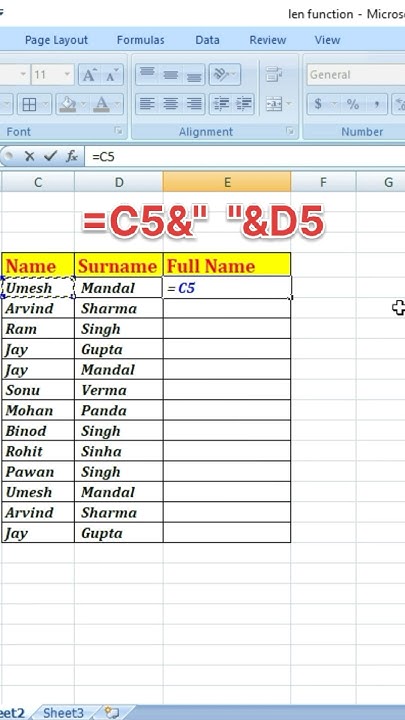 len function - Microso
Page Layout Formulas Data Review View
11 A A General
$ % ,
Font Alignment Number
fx =C5
C D E F G
=C5&" "&D5
Name Surname Full Name
Umesh Mandal = C5
Arvind Sharma
Ram Singh
Jay Gupta
Jay Mandal
Sonu Verma
Mohan Panda
Binod Singh
Rohit Sinha
Pawan Singh
Umesh Mandal
Arvind Sharma
Jay Gupta
eet2 Sheet3